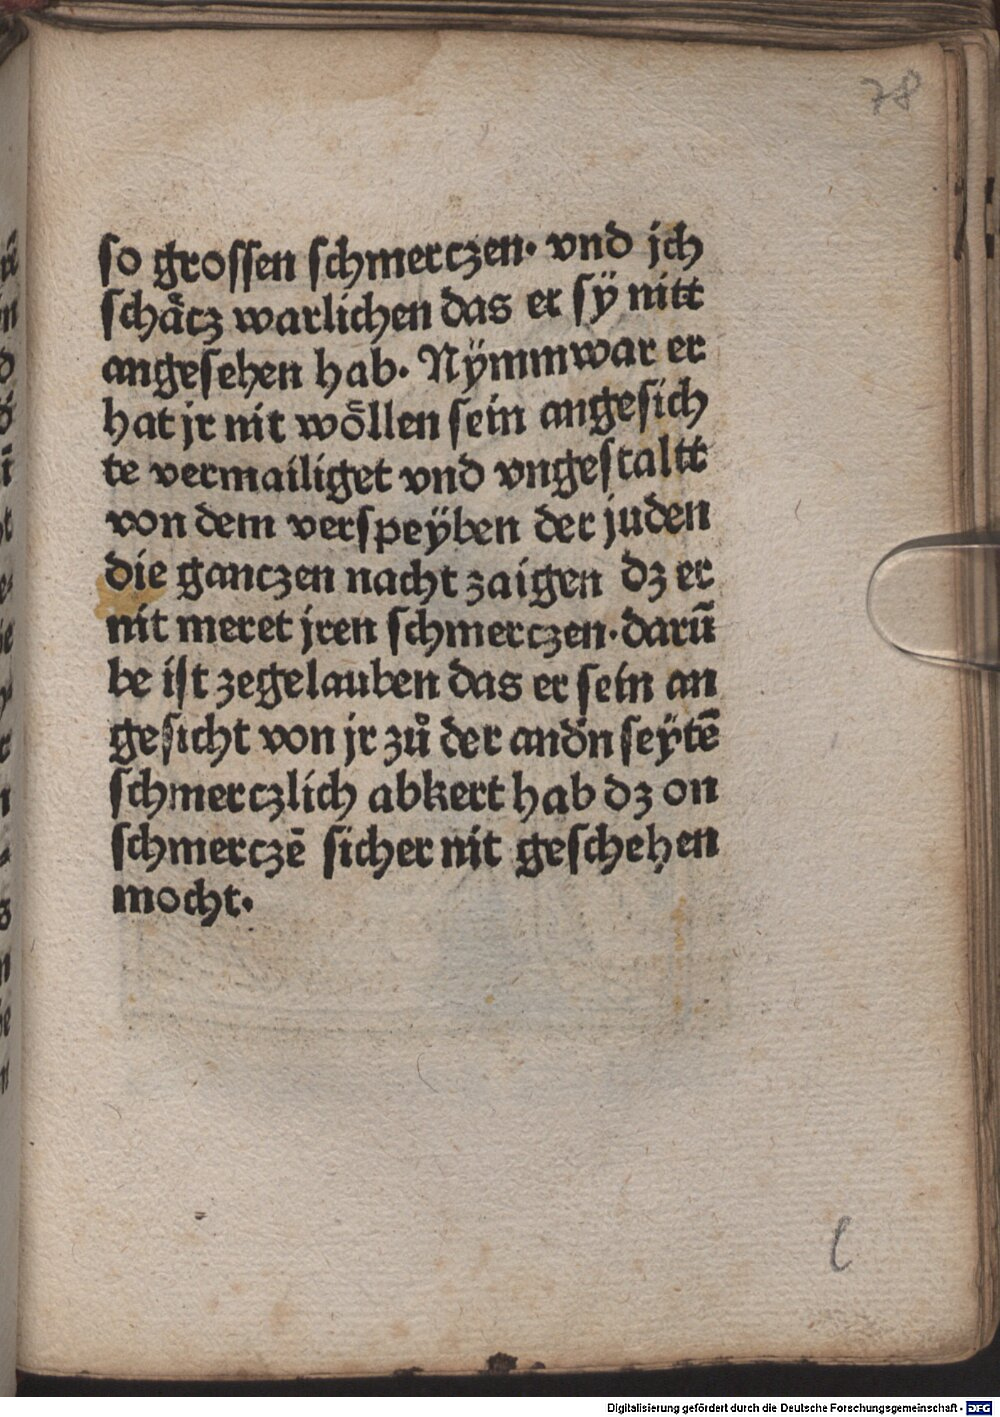 78
so grossen schmerczen· vnd jch
schåcz warlichen das er sÿ nitt
angesehen hab· Nÿmmwar er
hat jr nit wo᷑llen sein angesich
te vermailiget vnd vngestaltt
von dem verspeÿben der juden
die ganczen nacht zaigen dz er
nit meret jren schmerczen·darū
be ist zegelauben das er sein an
gesicht von jr zů der andn̄ seÿtē
schmerczlich abkert hab dz on
schmerczē sicher nit geschehen
mocht·
Digitalisierung gefördert durch die Deutsche Forschungsgemeinschaft - DFG